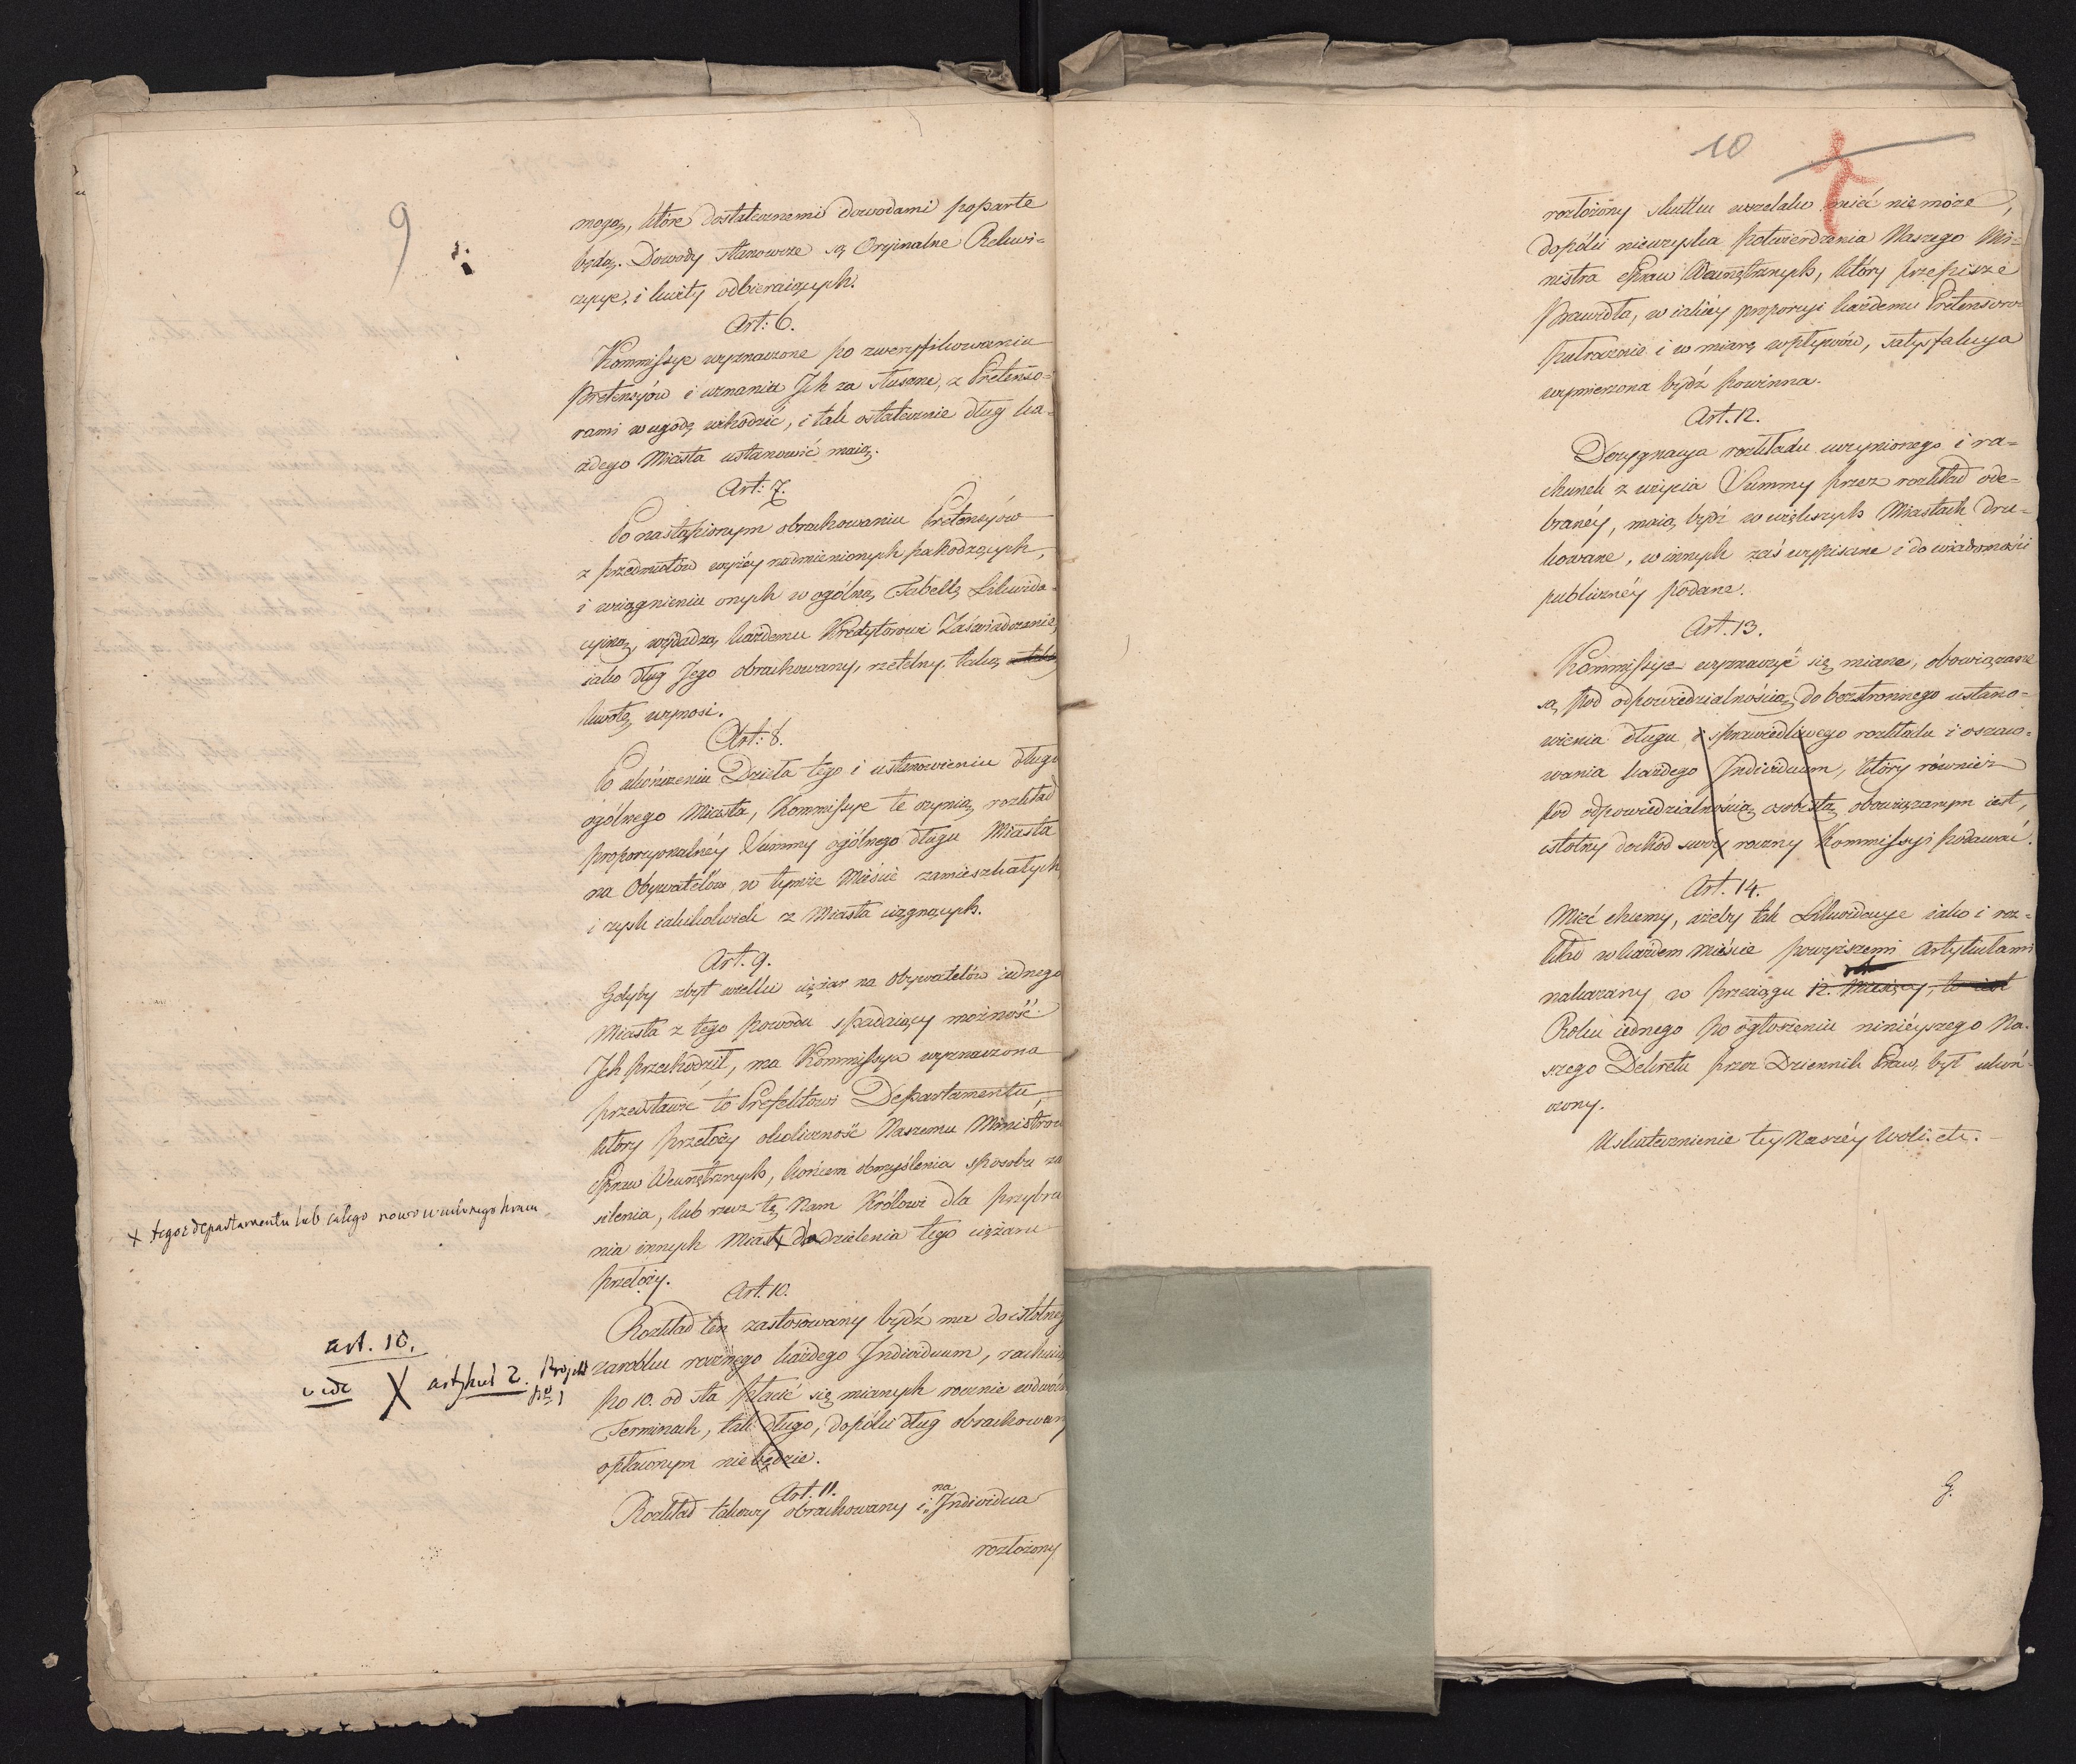 9
mogą, które dostatecznemi dowodami poparte
będą. Dowody stanowcze są Oryinalne Rekwi-
zycye, i kwity odbieraiących.
Art: 6.
Kommissye wyznaczone po zweryfikowaniu
Pretensyów i uznaniu Jch za słuszne, z Pretenso-
rami w ugodę wchodzić, i tak ostatecznie dług ka-
żdego Miasta ustanowić maią.
Art: 7.
Po nastąpionym obrachowaniu Pretensyów
z przedmiotów wyżéy nadmienionych pochodzących,
i wciągnieniu onych w ogólną Tabellę Likwida-
cyiną, wydadzą każdemu Kredytorowi Zaświadczenie,
iako dług Jego obrachowany, rzetelny, taką
kwotę wynosi.
Art: 8.
Po ukończeniu Dzieła tego i ustanowieniu długu
ogólnego Miasta, Kommissye te czynią rozkład
proporcyonalnéy Summy ogólnego długu Miasta
na Obywatelów w tymże Mieście zamieszkałych
i zysk iakikolwiek z Miasta ciągnących.
Art. 9.
Gdyby zbyt wielki ciężar na Obywatelów iednego
Miasta z tego powodu spadaiący możność
Jch przechodził, ma Kommissya wyznaczona
przedstawić to Prefektowi Departamentu,
który przełoży okoliczność Naszemu Ministrowi
Spraw Wewnętrznych, końcem obmyślenia sposobu za
silenia, lub rzecz tę Nam Królowi dla przybra
nia innych Miast X do dzielenia tego ciężaru
przełoży.
X tegoż departamentu lub całego nowo wcielonego kraiu
Art. 10.
Rozkład ten zastosowany bydź ma do istotnego
zarobku rocznego każdego Individuum, rachuiąc
po 10. od sta płacić się mianych rocznie w dwóch
Terminach, tak długo, dopóki dług obrachowany
opłaconym nie będzie.
art. 10.
vide X artykuł 2. Projekt
No 1
Art. 11.
Rozkład takowy obrachowany i na Individua
rozłożony
10
rozłożony skutku wszelako mieć nie może,
dopóki nieuzyska potwierdzenia Naszego Mi-
nistra Spraw Wewnętrznych, który przepisze
Prawidła, w iakiéy proporcyi każdemu Pretensoro-
wi wypadnie i w miarę wpływów, satysfakcya
wymierzona bydź powinna.
Art. 12.
Dezygnacya rozkładu uczynionego i ra-
chunek z użycia Summy przez rozkład ode-
branéy, maią bydź w większych Miastach dru-
kowane, w innych zaś wypisane i do wiadomości
publicznéy podane.
Art. 13.
Kommissye wyznaczyć się miane, obowiązane
są, pod odpowiedzialnością, do bezstronnego ustano-
wienia długu, i sprawiedliwego rozkładu i oszaco-
wania każdego Individuum, który również
pod odpowiedzialnością osobistą obowiązanym iest,
istotny dochód swóy roczny Kommissyi podawać.
Art. 14.
Mieć chcemy, ażeby tak Likwidacye iako i roz-
kład w każdem mieście powyższemi Artykułami
nakazany w przeciągu 12. Miesięcy, to iest
Roku iednego po ogłoszeniu ninieyszego Na-
szego Dekretu przez Dziennik Praw, był ukoń-
czony.
Uskutecznienie tey Naszéy woli etc. –
G.